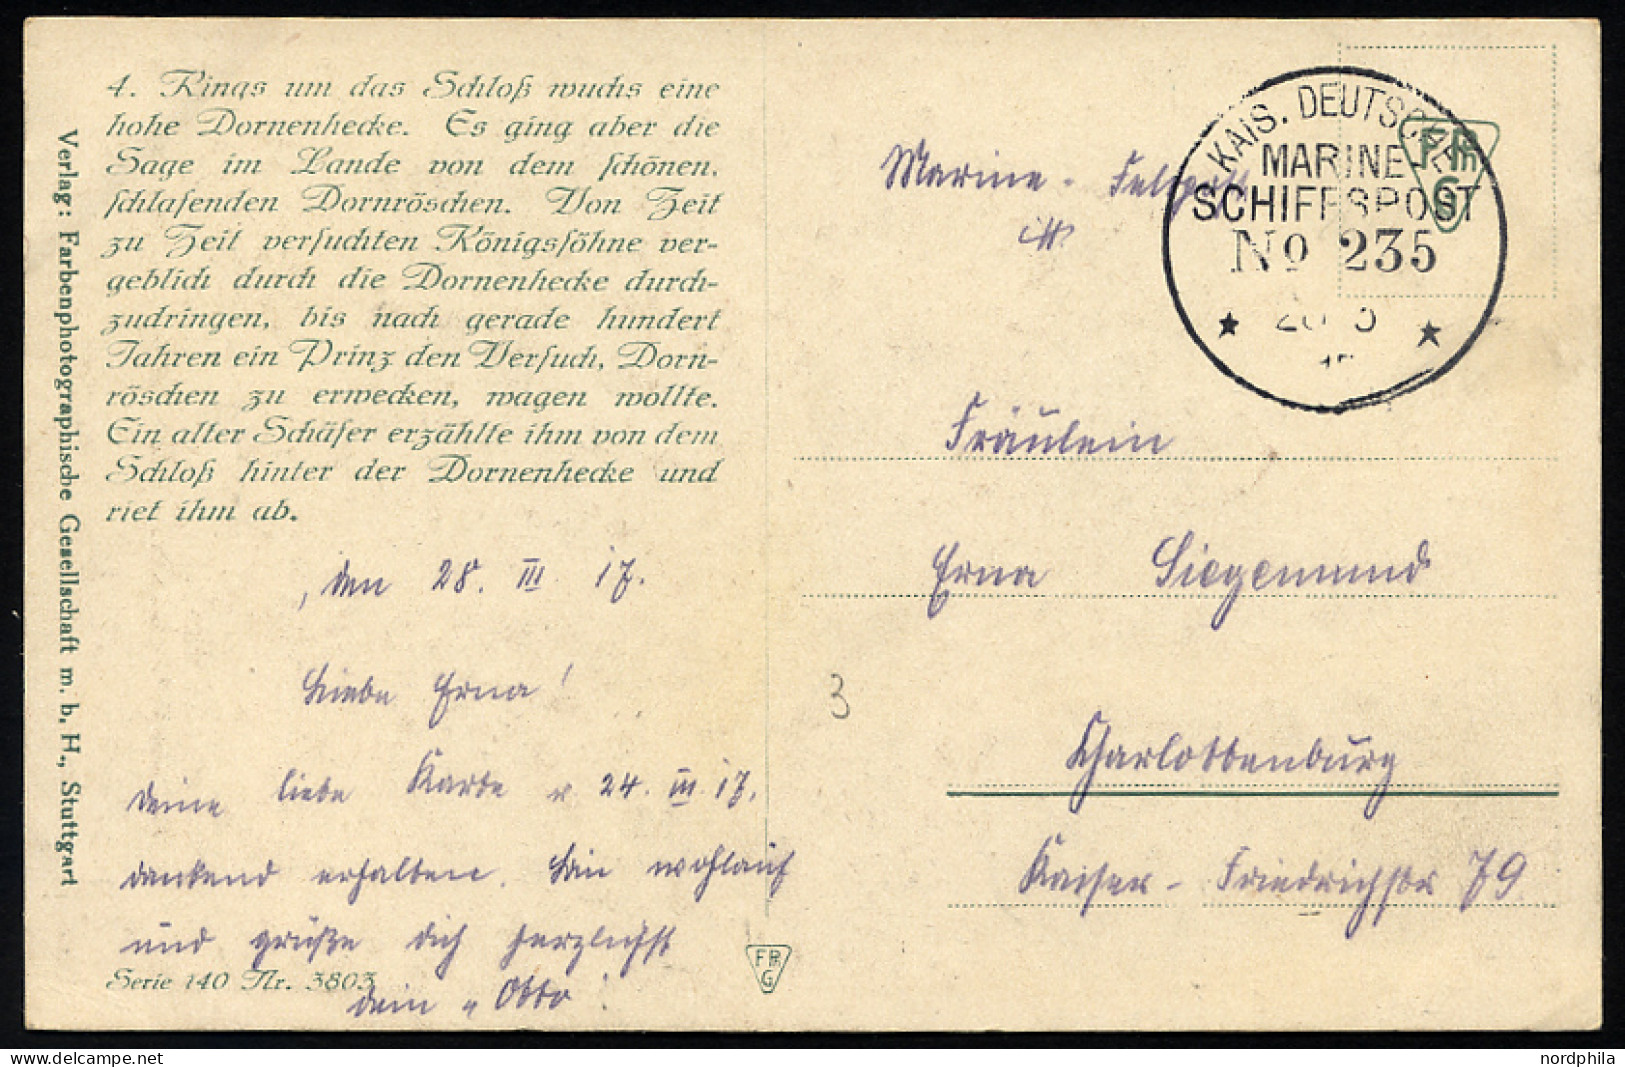 4. Rings um das Schloß wuchs eine
hohe Dornenhecke. Es ging aber die
Sage im Lande von dem schönen,
schlafenden Dornröschen. Von Zeit
zu Zeit versuchten Königssöhne ver-
geblich durch die Dornenhecke durch-
zudringen, bis nach gerade hundert
Jahren ein Prinz den Versuch, Dorn-
röschen zu erwecken, wagen wollte.
Ein alter Schäfer erzählte ihm von dem
Schloß hinter der Dornenhecke und
riet ihm ab.
Verlag: Farbenphotographische Gesellschaft m. b. H., Stuttgart
, den 28. III. 17.
Liebe Erna!
Deine liebe Karte v. 24. III. 17.
dankend erhalten. Bin wohlauf
und grüße dich herzlichst
Dein „Otto".
Serie 140 Nr. 3803
FPhG
Marine - Feldpost
KAIS. DEUTSCHE
MARINE
SCHIFFSPOST
No 235
FPhG
Fräulein
Erna Siegemund
3
Charlottenburg
Kaiser-Friedrichstr 79
nordphila